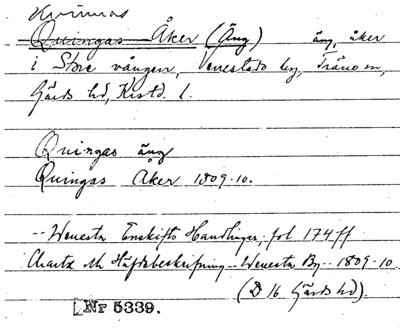 Kvinnas
Quingas Åker (Äng) äng, åker
i Store vången, Venestads by, Träne sn,
Gärds hd, Krstd. l.
Quingas äng
Quingas Åker 1809-10.
-- Wenesta Enskifts Handlingar, fol 174 ff
Charta M Häfdebeskrifning -- Wenesta By -- 1809-10
(D 16 Gärds hd).
Nr 5339.